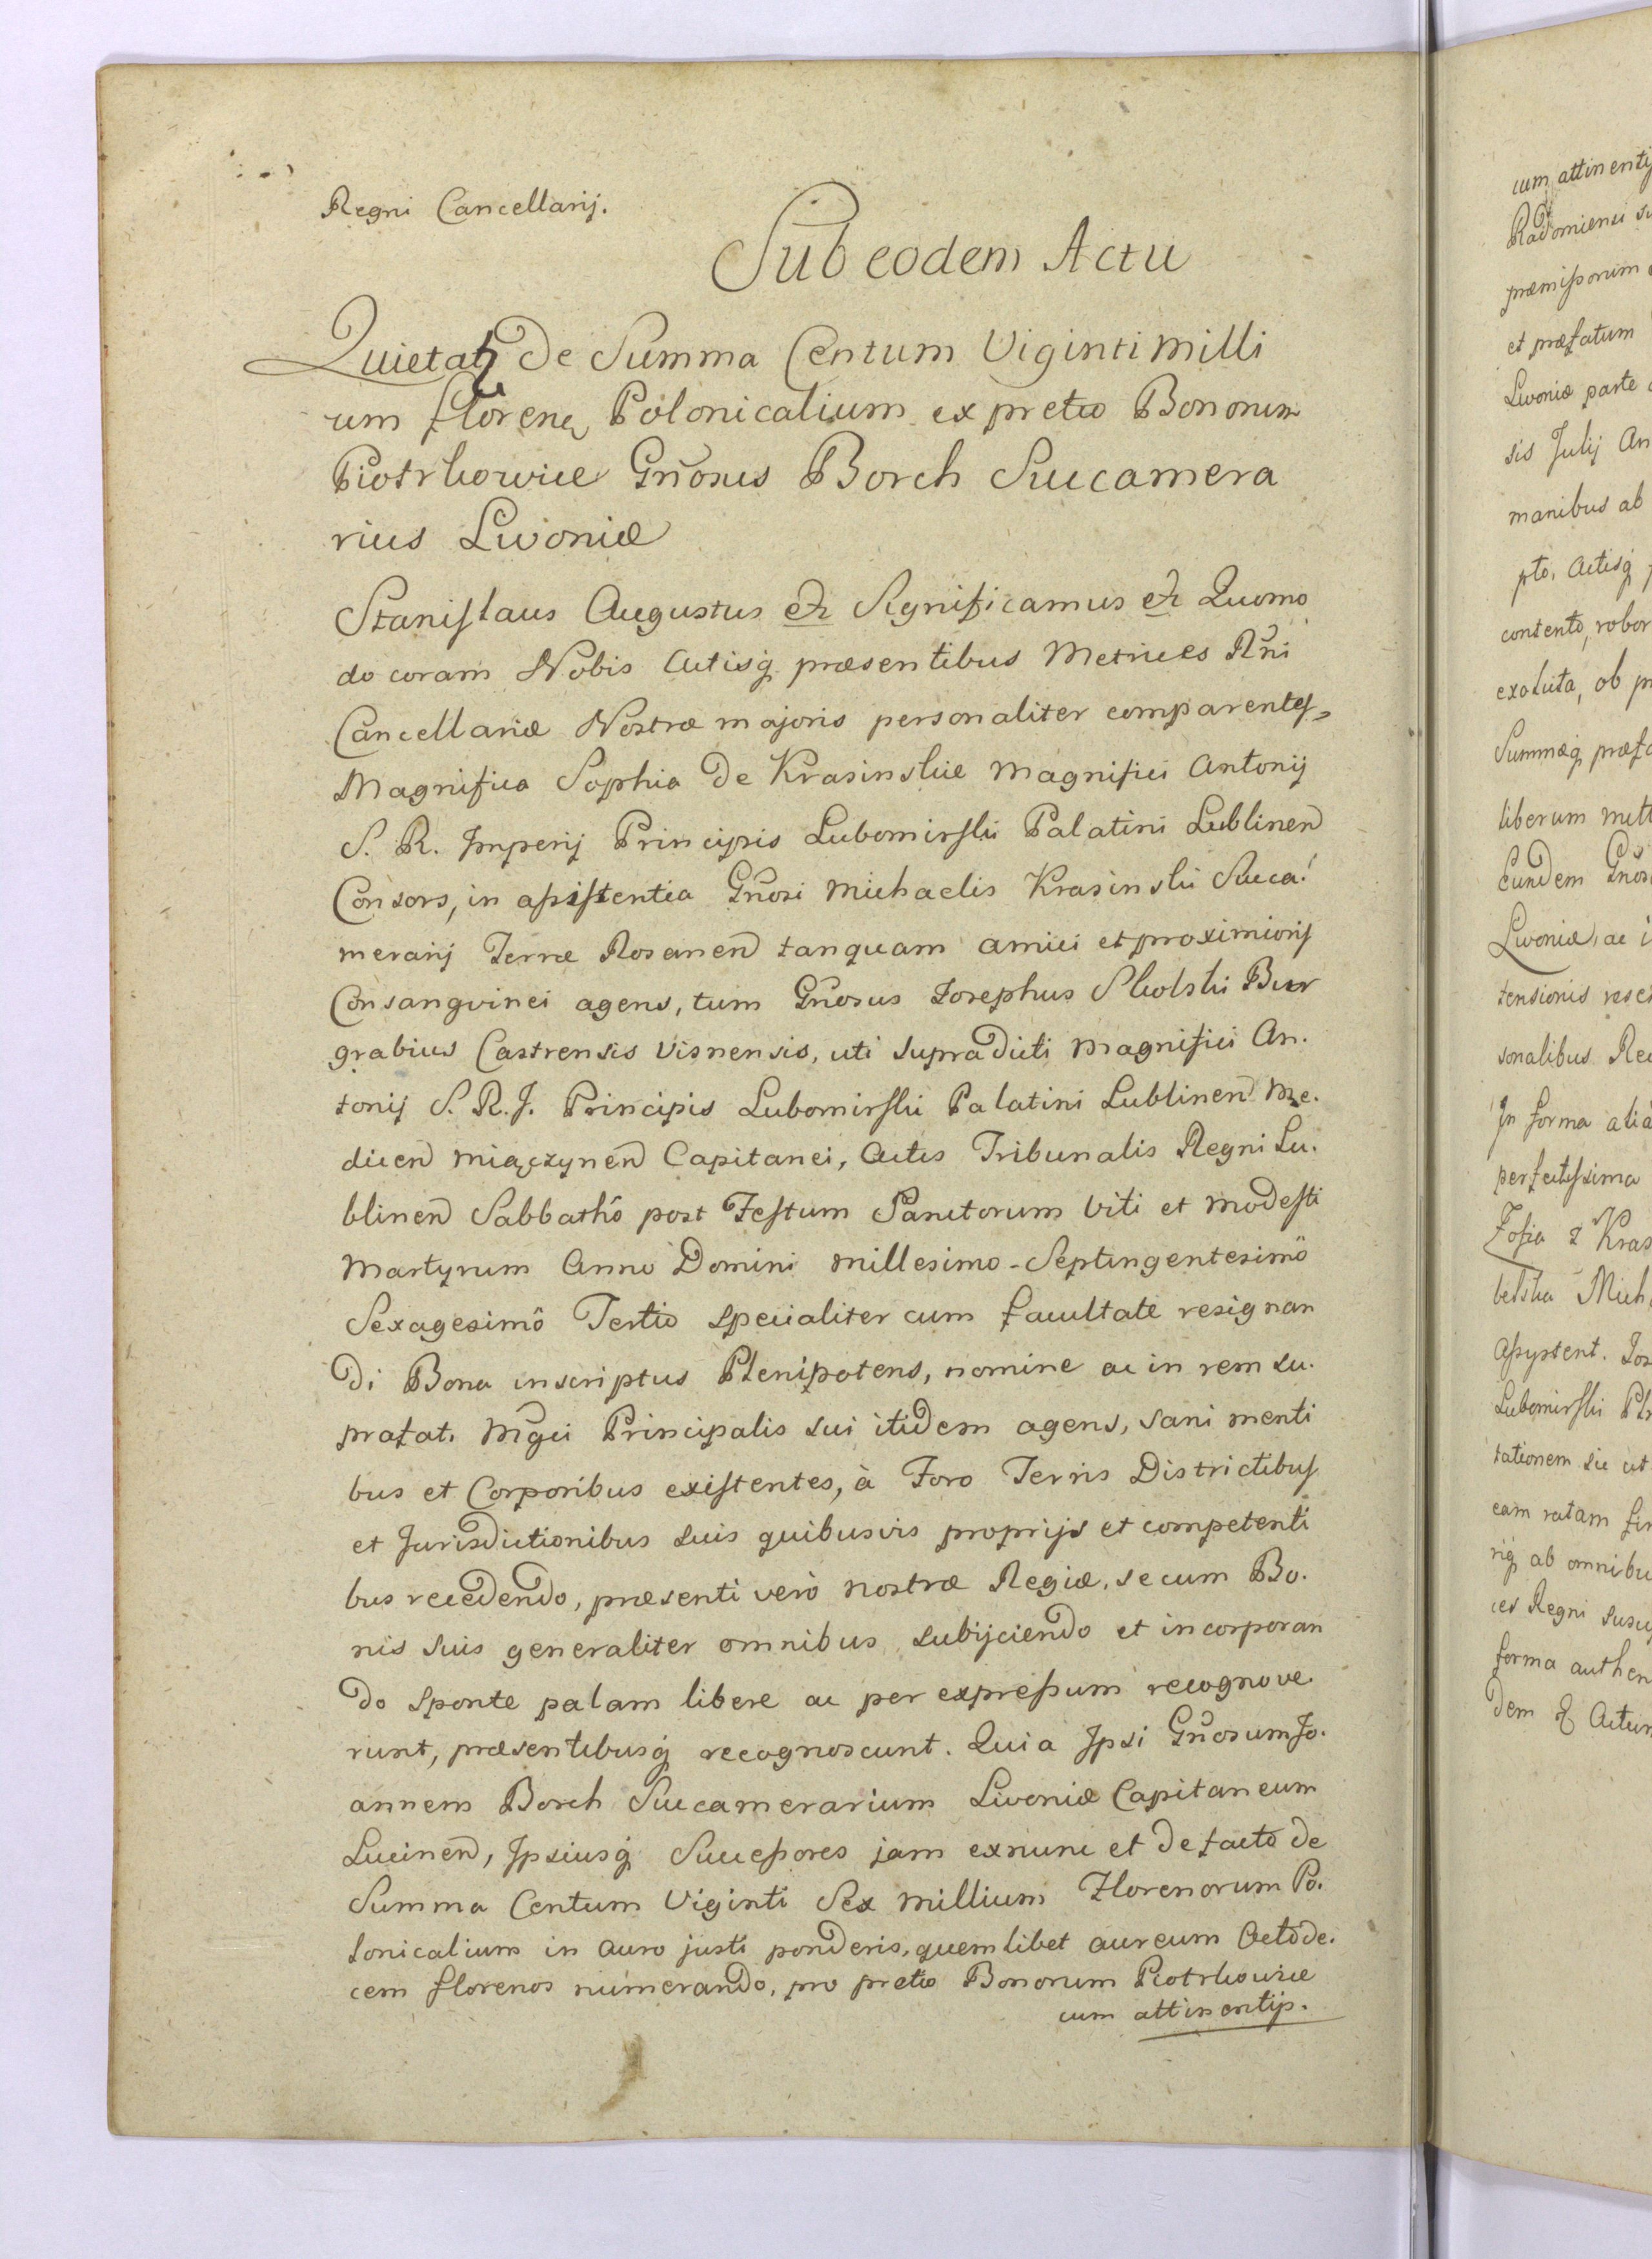 Regni Cancellarij.
Sub eodem Actu
Quietatz de Summa Centum Viginti milli
um florenq Polonicalium ex pretio Bonorum
Piotrkowice Gñosus Borch Succamera
rius Livoniæ
Stanislaus Augustus etz Significamus etz Quomo
do coram Nobis Actisq præsentibus Metrices Rñi
Cancellariæ Nostræ majoris personaliter comparentes
Magnifica Sophia de Krasinskie Magnifici Antonij
S. R. Imperij Principis Lubomirski Palatini Lublinen
Consors, in assistentia Gñosi Michaelis Krasinski Succa
merarij Terræ Rosanen tanquam amici et proximioris
Consangvinei agens, tum Gñosus Josephus Skolski Bur
grabius Castrensis Visnensis, uti supradicti Magnifici An.
tonij S. R. J. Principis Lubomirski Palatini Lublinen Me.
dicen Miączynen Capitanei, Actis Tribunalis Regni Lu.
blinen Sabbathô post Festum Sanctorum Viti et Modesti
Martyrum Anno Domini Millesimo-Septingentesimô
Sexagesimô Tertio specialiter cum facultate resignan
di Bona inscriptus Plenipotens, nomine ac in rem su.
prafat. Mgci Principalis sui itidem agens, sani menti
bus et Corporibus existentes, à Foro Terris Districtibus
et Jurisdictionibus suis quibusvis proprijs et competenti
bus recedendo, præsenti verò nostræ Regiæ, se cum Bo.
nis suis generaliter omnibus subijciendo et incorporan
do sponte palam libere ac per expressum recognove.
runt, præsentibusq recognoscunt. Quia Ipsi Gñosum Jo.
annem Borch Succamerarium Livoniæ Capitaneum
Lucinen, Ipsiusq Successores jam exnunc et de facto de
Summa Centum Viginti Sex Millium Florenorum Po.
lonicalium in auro justi ponderis, quemlibet aureum Octode.
cem florenos numerando, pro pretio Bonorum Piotrkowice
cum attinentijs.
cum attinentij
Radomiensi
præmissorum
et præfatum
Livoniæ parte
sis Julij An
manibus ab
pto, Actisq
contento, robor
exoluta, ob
Summæq præfa
liberum
Eundem Gños
Livoniæ, ac
tensionis
sonalibus Re
In forma alia
perfectissima
Zofia z Kras
belska Mich
Assystent. Jos
Lubomirski
tationem sic ut
eam ratam
ab omnibu
ces Regni
forma authen
dem